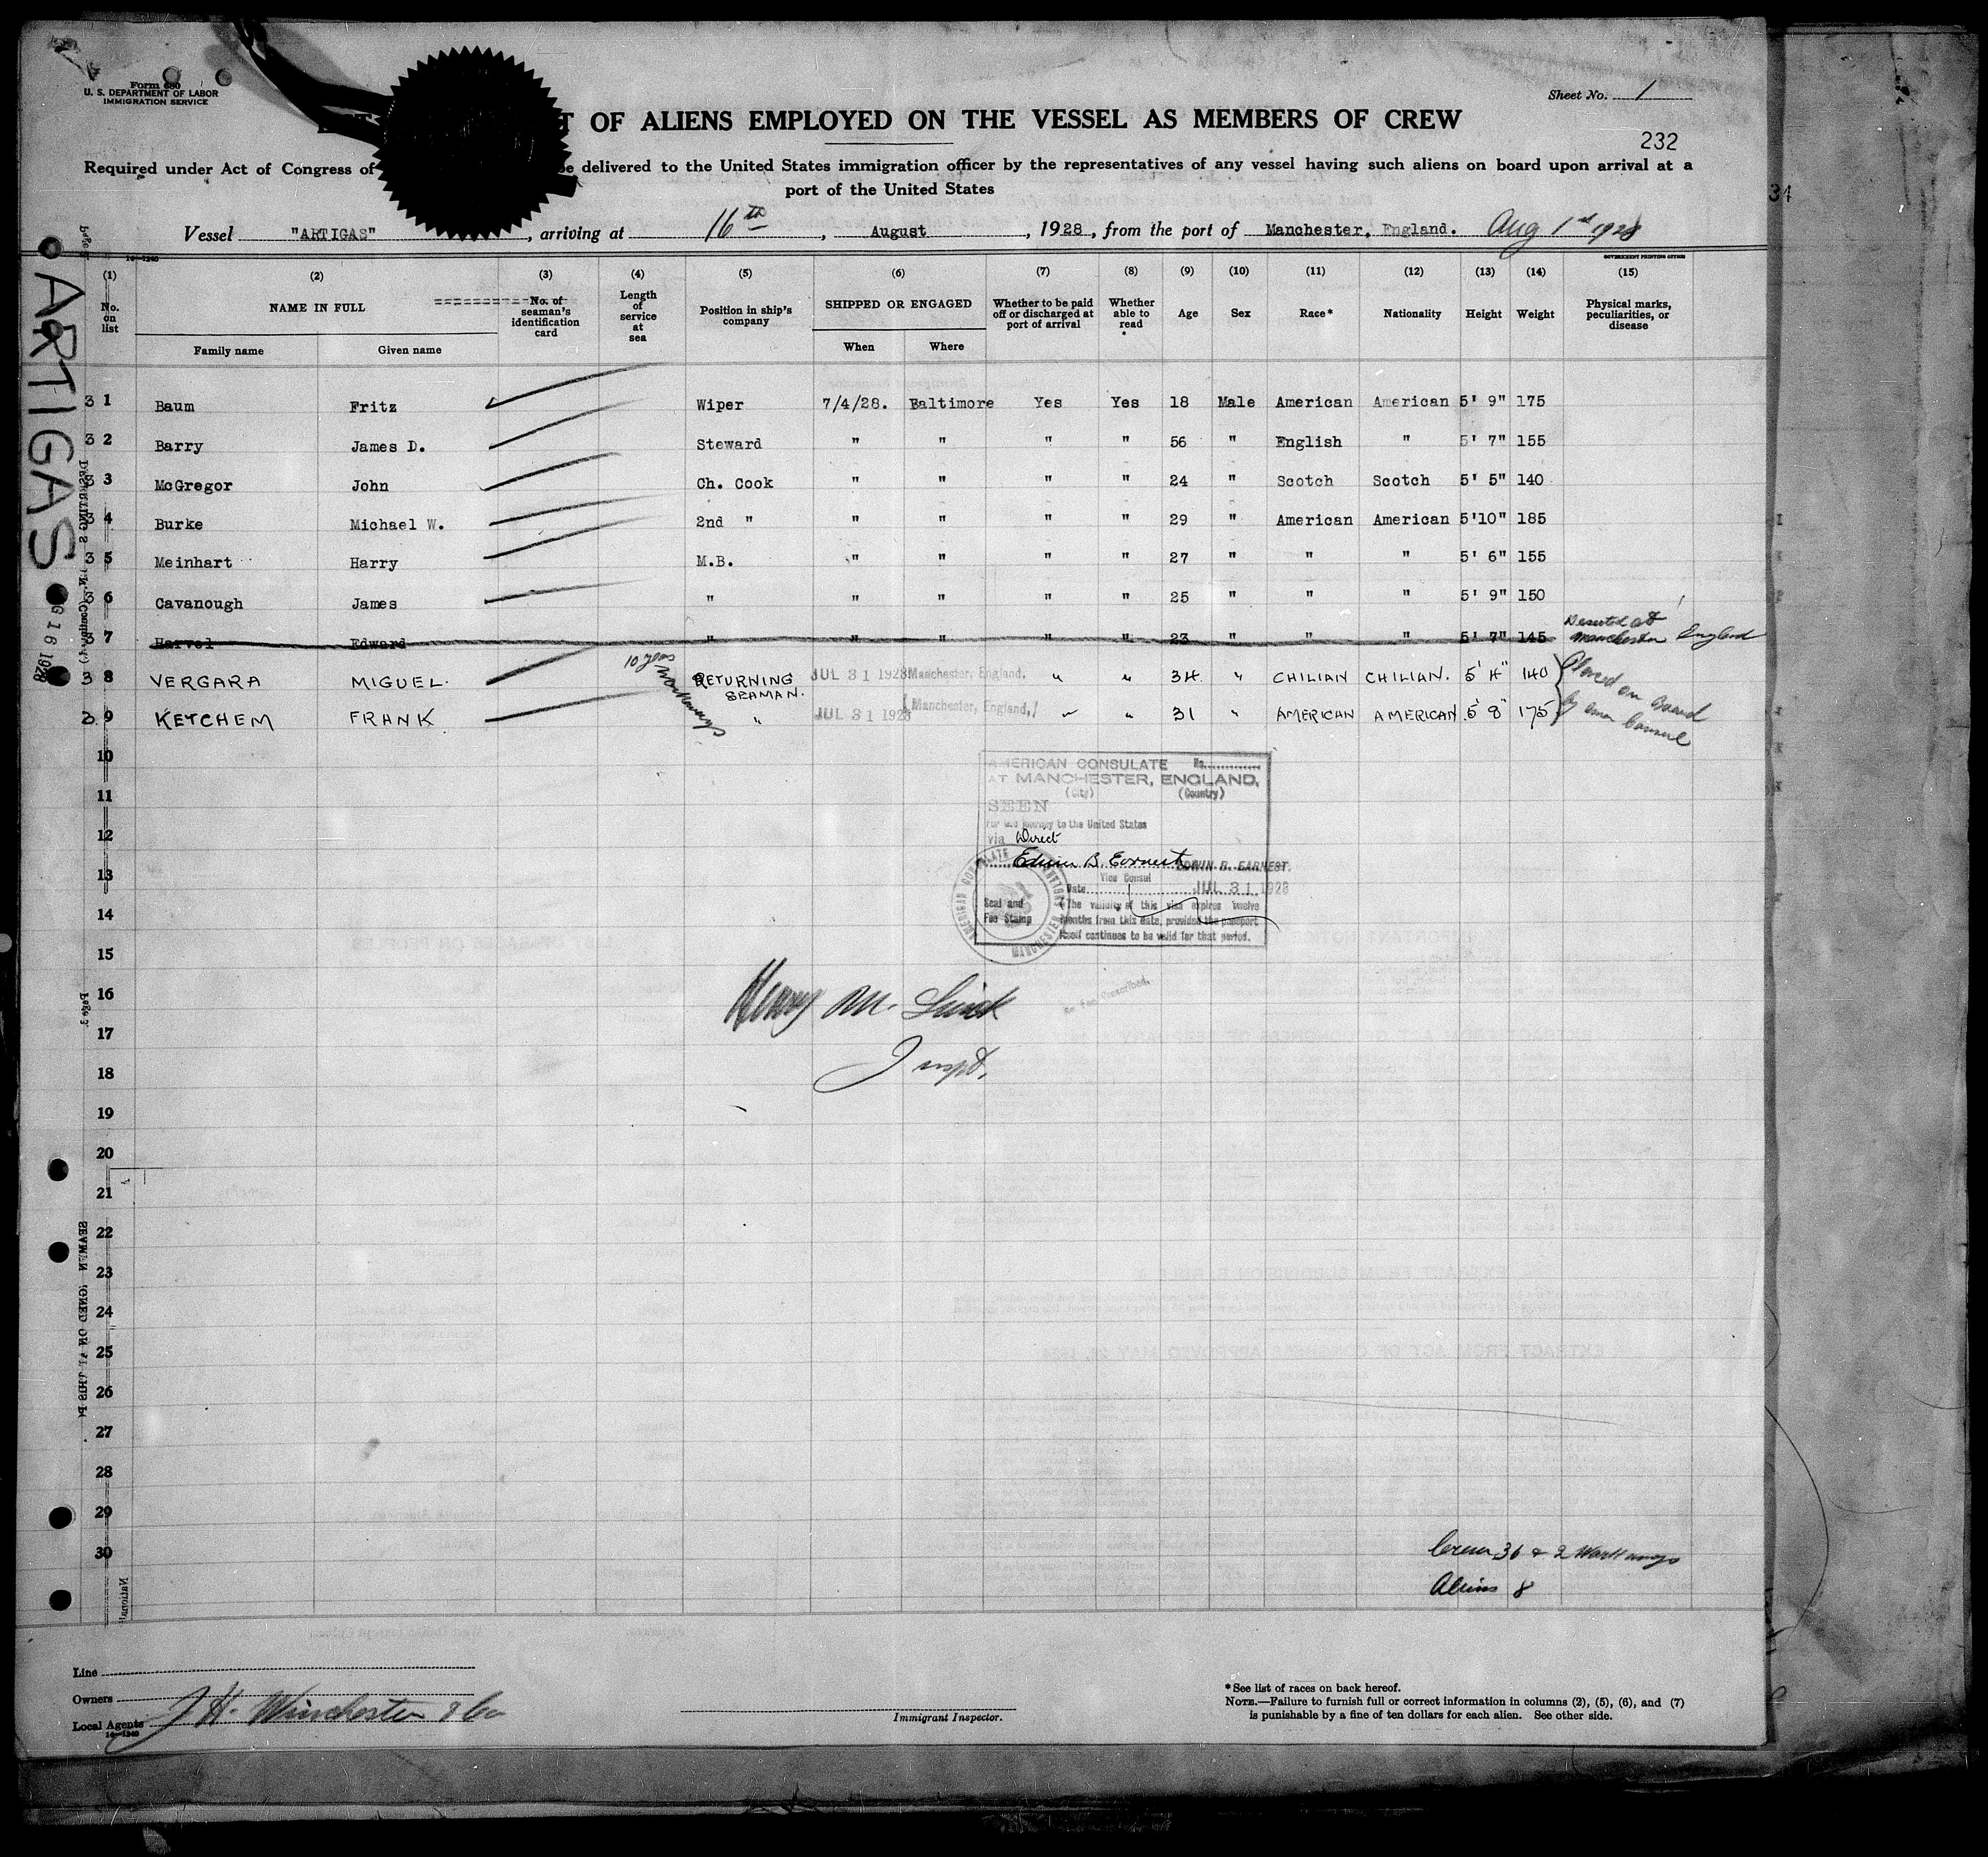 Form 680
U. S. DEPARTMENT OF LABOR
IMMIGRATION SERVICE
Sheet No. 1
T OF ALIENS EMPLOYED ON THE VESSEL AS MEMBERS OF CREW
232
Required under Act of Congress of be delivered to the United States immigration officer by the representatives of any vessel having such aliens on board upon arrival at a
port of the United States
34
Vessel "ARTIGAS", arriving at 16th, August, 1928, from the port of Manchester, England. Aug 1st 1928
GOVERNMENT PRINTING OFFICE
(1) (2) (3) (4) (5) (6) (7) (8) (9) (10) (11) (12) (13) (14) (15)
No. on list NAME IN FULL No. of seaman's identification card Length of service at sea Position in ship's company SHIPPED OR ENGAGED Whether to be paid off or discharged at port of arrival Whether able to read Age Sex Race* Nationality Height Weight Physical marks, peculiarities, or disease
Family name Given name When Where
3 1 Baum Fritz Wiper 7/4/28. Baltimore Yes Yes 18 Male American American 5' 9" 175
3 2 Barry James D. Steward " " " " 56 " English " 5' 7" 155
3 3 McGregor John Ch. Cook " " " " 24 " Scotch Scotch 5' 5" 140
3 4 Burke Michael W. 2nd " " " " " 29 " American American 5'10" 185
3 5 Meinhart Harry M.B. " " " " 27 " " " 5' 6" 155
3 6 Cavanough James " " " " " 25 " " " 5' 9" 150
3 7 Harvel Edward " " " " " 23 " " " 5' 7" 145 Deserted at Manchester England
3 8 VERGARA MIGUEL. 10 years RETURNING SEAMAN. JUL 31 1928 Manchester, England, " " 34 " CHILIAN CHILIAN. 5' 4" 140 Placed on board
3 9 KETCHEM FRANK Workaways " JUL 31 1928 Manchester, England, " " 31 " AMERICAN AMERICAN. 5' 8" 175 by Amer Consul
10
11
12
13
14
15
16
17
18
19
20
21
22
23
24
25
26
27
28
29
30
ARTIGAS
G 16 1928
AMERICAN CONSULATE No.
AT MANCHESTER, ENGLAND,
(City) (Country)
SEEN
For the journey to the United States
via Direct
Edwin B. Earnest EDWIN B. EARNEST.
Vice Consul
Date JUL 31 1928
Seal and Fee Stamp
The validity of this visa expires twelve
months from this date, provided the passport
itself continues to be valid for that period.
AMERICAN CONSULATE
MANCHESTER
No Fee Prescribed.
Henry M.
Inspt.
Crew 36 & 2 Workaways
Aliens 8
Line
Owners
Local Agents J H. Winchester & Co
Immigrant Inspector.
*See list of races on back hereof.
NOTE.—Failure to furnish full or correct information in columns (2), (5), (6), and (7)
is punishable by a fine of ten dollars for each alien. See other side.